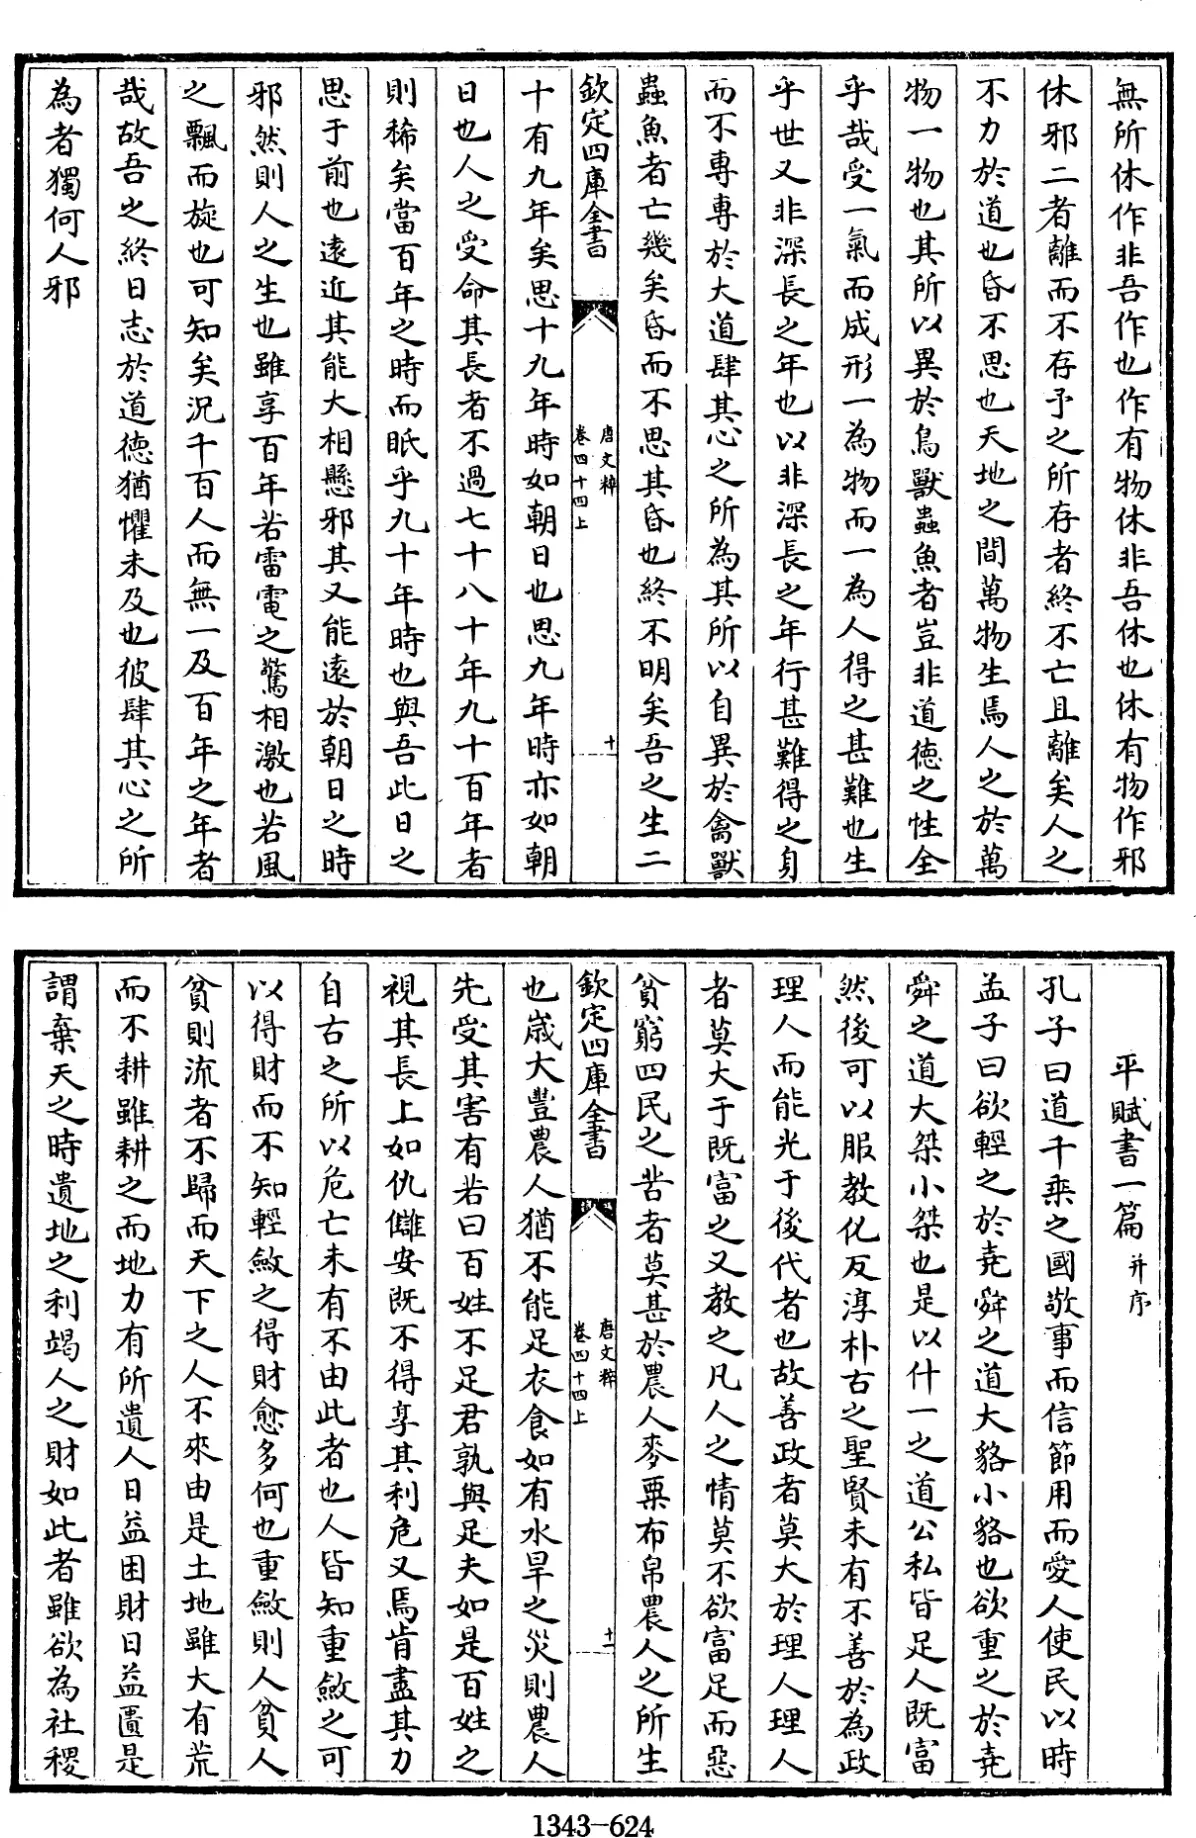 無所休作非吾作也作有物休非吾休也休有物作邪
休邪二者離而不存予之所存者終不亡且離矣人之
不力於道也昏不思也天地之間萬物生焉人之於萬
物一物也其所以異於鳥獸蟲魚者豈非道德之性全
乎哉受一氣而成形一為物而一為人得之甚難也生
乎世又非深長之年也以非深長之年行甚難得之身
而不專專於大道肆其心之所為其所以自異於禽獸
蟲魚者亡幾矣昏而不思其昏也終不明矣吾之生二
欽定四庫全書
唐文粹
卷四十四上
十
十有九年矣思十九年時如朝日也思九年時亦如朝
日也人之受命其長者不過七十八十年九十百年者
則稀矣當百年之時而眂乎九十年時也與吾此日之
思于前也遠近其能大相懸邪其又能遠於朝日之時
邪然則人之生也雖享百年若雷電之驚相激也若風
之飄而旋也可知矣況千百人而無一及百年之年者
哉故吾之終日志於道德猶懼未及也彼肆其心之所
為者獨何人邪
平賦書一篇并序
孔子曰道千乗之國敬事而信節用而愛人使民以時
孟子曰欲輕之於堯舜之道大貉小貉也欲重之於堯
舜之道大桀小桀也是以什一之道公私皆足人既富
然後可以服教化反淳朴古之聖賢未有不善於為政
理人而能光于後代者也故善政者莫大於理人理人
者莫大于既富之又教之凡人之情莫不欲富足而惡
貧窮四民之苦者莫甚於農人麥粟布帛農人之所生
欽定四庫全書
唐文粹
卷四十四上
十一
也歲大豐農人猶不能足衣食如有水旱之災則農人
先受其害有若曰百姓不足君孰與足夫如是百姓之
視其長上如仇讎安既不得享其利危又焉肯盡其力
自古之所以危亡未有不由此者也人皆知重斂之可
以得財而不知輕斂之得財愈多何也重斂則人貧人
貧則流者不歸而天下之人不來由是土地雖大有荒
而不耕雖耕之而地力有所遺人日益困財日益匱是
謂棄天之時遺地之利竭人之財如此者雖欲為社稷
1343-624